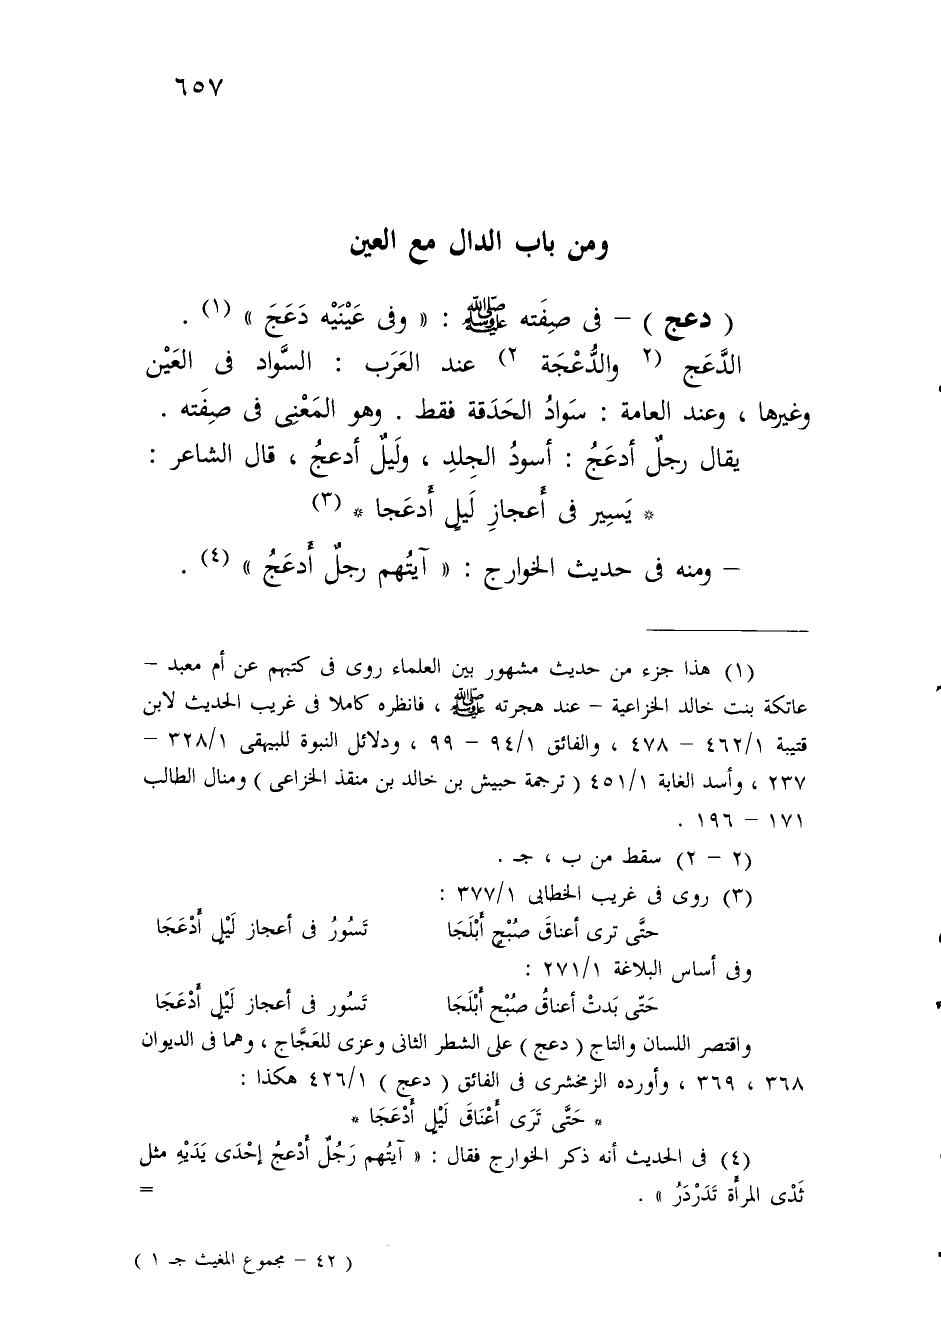 ٦٥٧
ومن باب الدال مع العين
( دعج ) – فى صِفَته ﷺ : « وفى عَيْنَيْه دَعَجَ » (١) .
الدَّعَج (٢ والدُّعْجَة ٢) عند العَرَب : السَّواد فى العَيْن
وغيرها ، وعند العامة : سَوادُ الحَدَقة فقط . وهو المَعْنِى فى صِفَته .
يقال رجلٌ أدعَجُ : أسودُ الجِلدِ ، ولَيلٌ أدعجُ ، قال الشاعر :
* يَسِير فى أَعجازِ لَيلٍ أَدعَجا * (٣)
– ومنه فى حديث الخوارج : « آيتُهم رجلٌ أَدعَجُ » (٤) .
(١) هذا جزء من حديث مشهور بين العلماء روى فى كتبهم عن أم معبد –
عاتكة بنت خالد الخزاعية – عند هجرته ﷺ ، فانظره كاملا فى غريب الحديث لابن
قتيبة ٤٦٢/١ – ٤٧٨ ، والفائق ٩٤/١ – ٩٩ ، ودلائل النبوة للبيهقى ٣٢٨/١ –
٢٣٧ ، وأسد الغابة ٤٥١/١ ( ترجمة حبيش بن خالد بن منقذ الخزاعى ) ومنال الطالب
١٧١ – ١٩٦ .
(٢ – ٢) سقط من ب ، جـ .
(٣) روى فى غريب الخطابى ٣٧٧/١ :
حتَّى ترى أعناقَ صُبْحٍ أَبْلَجَا تَسُورُ فى أعجاز لَيْلٍ أَدْعَجَا
وفى أساس البلاغة ٢٧١/١ :
حَتّى بَدتْ أعناقُ صُبْح أَبْلَجَا تَسُور فى أعجاز لَيْلٍ أَدْعَجَا
واقتصر اللسان والتاج ( دعج ) على الشطر الثانى وعزى للعَجَّاج ، وهما فى الديوان
٣٦٨ ، ٣٦٩ ، وأورده الزمخشرى فى الفائق ( دعج ) ٤٢٦/١ هكذا :
* حَتَّى تَرَى أَعْنَاقَ لَيْلٍ أَدْعَجَا *
(٤) فى الحديث أنه ذكر الخوارج فقال : « آيتُهم رَجُلٌ أَدْعجُ إحْدَى يَدَيْهِ مثل
ثَدْى المرأَة تَدَرْدَرُ » . =
( ٤٢ – مجموع المغيث جـ ١ )